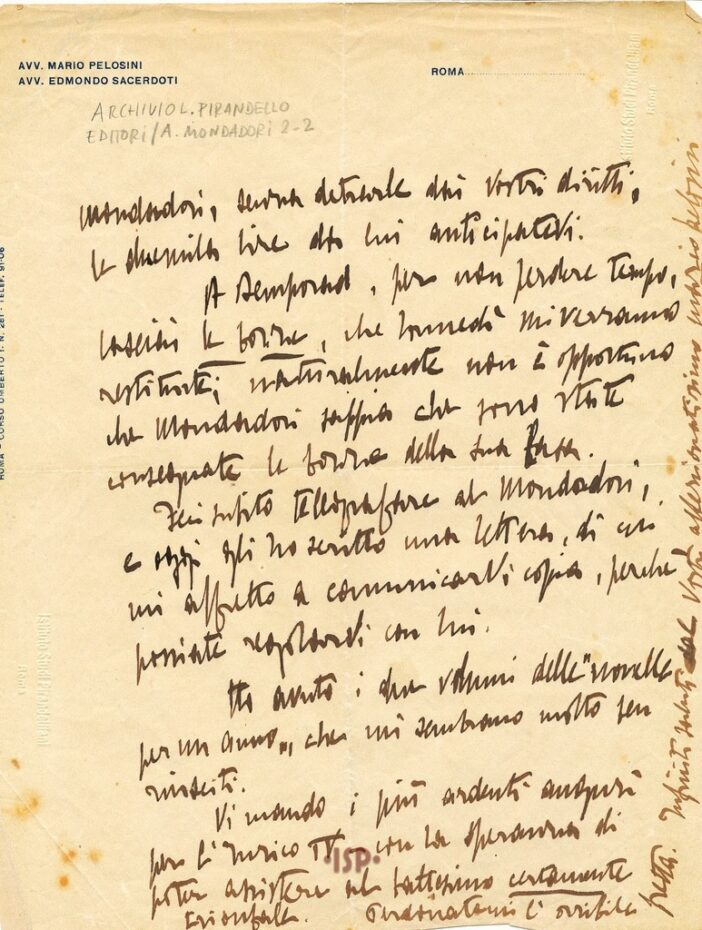 AVV. MARIO PELOSINI
AVV. EDMONDO SACERDOTI
ROMA
ARCHIVIO L. PIRANDELLO
EDITORI/A. MONDADORI 2-2
ROMA - CORSO UMBERTO I. N. 281 - TELEF. 91-06
Mondadori, senza detrarle dai vostri diritti,
le duemila lire da lui anticipatevi.
A Bemporad, per non perdere tempo,
lasciai le bozze, che lunedì mi verranno
restituite; naturalmente non è opportuno
che Mondadori sappia che sono state
consegnate le bozze della sua Casa.
Feci subito telegrafare al Mondadori,
e oggi gli ho scritto una lettera, di cui
mi affretto a comunicarvi copia, perchè
possiate regolarvi con lui.
Ho avuto i due volumi delle "novelle
per un anno", che mi sembrano molto ben
riusciti.
Vi mando i più ardenti auguri
per l'Enrico IV con la speranza di
poter assistere al battesimo certamente
trionfale. Perdonatemi l'orribile
fretta. Infiniti saluti dal Vostro affezionatissimo Mario Pelosini
Istituto Studi Pirandelliani
Roma
Istituto Studi Pirandelliani
Roma
·ISP·